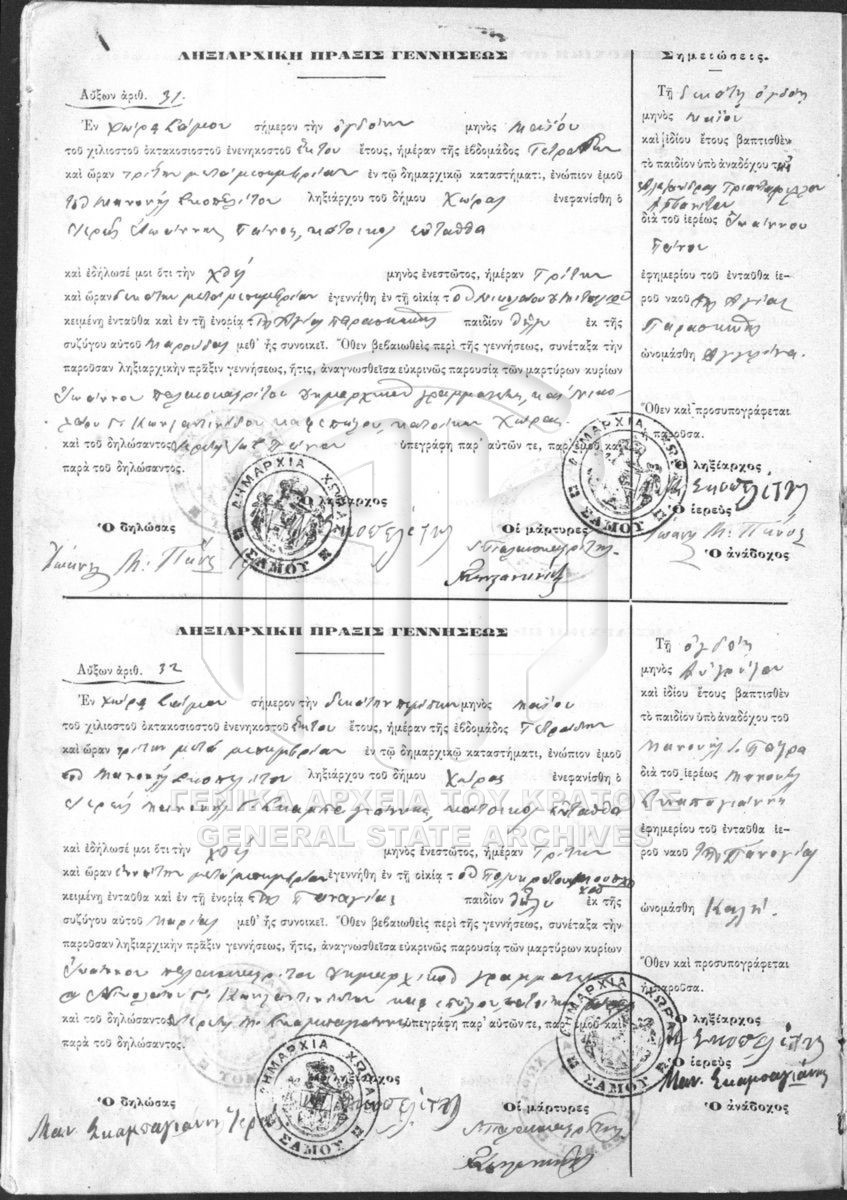 ΛΗΞΙΑΡΧΙΚΗ ΠΡΑΞΙΣ ΓΕΝΝΗΣΕΩΣ
Αὔξων ἀριθ. 31.
Ἐν Χώρᾳ Σάμου σήμερον τὴν ὀγδόην μηνὸς Μαΐου
τοῦ χιλιοστοῦ ὀκτακοσιοστοῦ ἐνενηκοστοῦ ἕκτου ἔτους, ἡμέραν τῆς ἑβδομάδος Τετράδην
καὶ ὥραν τρίτην μετὰ μεσημβρίαν ἐν τῷ δημαρχικῷ καταστήματι, ἐνώπιον ἐμοῦ
τοῦ Μανουὴλ Σκοπελίτου ληξιάρχου τοῦ δήμου Χώρας ἐνεφανίσθη ὁ
Ἱερεὺς Ἰωάννης Πάνος, κάτοικος ἐνταῦθα
καὶ ἐδήλωσέ μοι ὅτι τὴν χθὲς μηνὸς ἐνεστῶτος, ἡμέραν Τρίτην
καὶ ὥραν δεκάτην μετὰ μεσημβρίαν ἐγεννήθη ἐν τῇ οἰκίᾳ τοῦ Νικολάου
κειμένῃ ἐνταῦθα καὶ ἐν τῇ ἐνορίᾳ τῆς Ἁγίας Παρασκευῆς παιδίον θῆλυ ἐκ τῆς
συζύγου αὐτοῦ Μαρούδας μεθ' ἧς συνοικεῖ. Ὅθεν βεβαιωθεὶς περὶ τῆς γεννήσεως, συνέταξα τὴν
παροῦσαν ληξιαρχικὴν πρᾶξιν γεννήσεως, ἥτις, ἀναγνωσθεῖσα εὐκρινῶς παρουσίᾳ τῶν μαρτύρων κυρίων
Ἰωάννου Παλαιοκαστρίτου δημαρχικοῦ γραμματέως καὶ Νικο-
λάου Γ. Κωνσταντινίδου καφεπώλου, κατοίκων Χώρας
καὶ τοῦ δηλώσαντος Ἱερέως Ἰω. Πάνου ὑπεγράφη παρ' αὐτῶν τε, παρ' ἐμοῦ καὶ
παρὰ τοῦ δηλώσαντος.
Ὁ ληξίαρχος
Σκοπελίτης
Ὁ δηλώσας
Ἰωάνης Μ. Πάνος
Οἱ μάρτυρες
ΔΗΜΑΡΧΙΑ ΧΩΡΑΣ
ΣΑΜΟΥ
Σημειώσεις.
Τῇ δεκάτῃ ὀγδόῃ
μηνὸς Μαΐου
καὶ ἰδίου ἔτους βαπτισθὲν
τὸ παιδίον ὑπὸ ἀναδόχου τῆς
Ἀλεξάνδρας
διὰ τοῦ ἱερέως Ἰωάννου
Πάνου
ἐφημερίου τοῦ ἐνταῦθα ἱε-
ροῦ ναοῦ τῆς Ἁγίας
Παρασκευῆς
ὠνομάσθη
Ὅθεν καὶ προσυπογράφεται
ἡ παροῦσα.
Ὁ ληξίαρχος
Σκοπελίτης
Ὁ ἱερεὺς
Ἰωάνης Μ. Πάνος
Ὁ ἀνάδοχος
ΔΗΜΑΡΧΙΑ ΧΩΡΑΣ
ΣΑΜΟΥ
ΛΗΞΙΑΡΧΙΚΗ ΠΡΑΞΙΣ ΓΕΝΝΗΣΕΩΣ
Αὔξων ἀριθ. 32
Ἐν Χώρᾳ Σάμου σήμερον τὴν δεκάτην πέμπτην μηνὸς Μαΐου
τοῦ χιλιοστοῦ ὀκτακοσιοστοῦ ἐνενηκοστοῦ ἕκτου ἔτους, ἡμέραν τῆς ἑβδομάδος Τετράδην
καὶ ὥραν τρίτην μετὰ μεσημβρίαν ἐν τῷ δημαρχικῷ καταστήματι, ἐνώπιον ἐμοῦ
τοῦ Μανουὴλ Σκοπελίτου ληξιάρχου τοῦ δήμου Χώρας ἐνεφανίσθη ὁ
Ἱερεὺς Μανουὴλ Σκαμπαγιάννης, κάτοικος ἐνταῦθα
ΓΕΝΙΚΑ ΑΡΧΕΙΑ ΤΟΥ ΚΡΑΤΟΥΣ
GENERAL STATE ARCHIVES
καὶ ἐδήλωσέ μοι ὅτι τὴν χθὲς μηνὸς ἐνεστῶτος, ἡμέραν Τρίτην
καὶ ὥραν ἐννάτην μετὰ μεσημβρίαν ἐγεννήθη ἐν τῇ οἰκίᾳ τοῦ Πολυκράτου
κειμένῃ ἐνταῦθα καὶ ἐν τῇ ἐνορίᾳ τῆς Παναγίας παιδίον θῆλυ ἐκ τῆς
συζύγου αὐτοῦ Μαρίας μεθ' ἧς συνοικεῖ. Ὅθεν βεβαιωθεὶς περὶ τῆς γεννήσεως, συνέταξα τὴν
παροῦσαν ληξιαρχικὴν πρᾶξιν γεννήσεως, ἥτις, ἀναγνωσθεῖσα εὐκρινῶς παρουσίᾳ τῶν μαρτύρων κυρίων
Ἰωάννου Παλαιοκαστρίτου δημαρχικοῦ γραμματέως
Νικολάου Γ. Κωνσταντινίδου καφεπώλου, κατοίκων
καὶ τοῦ δηλώσαντος Ἱερέως Μ. Σκαμπαγιάννη ὑπεγράφη παρ' αὐτῶν τε, παρ' ἐμοῦ καὶ
παρὰ τοῦ δηλώσαντος.
ληξίαρχος
Σκοπελίτης
Ὁ δηλώσας
Μαν. Σκαμπαγιάννης Ἱερεὺς
Οἱ μάρτυρες
ΔΗΜΑΡΧΙΑ ΧΩΡΑΣ
ΣΑΜΟΥ
Τῇ ὀγδόῃ
μηνὸς Αὐγούστου
καὶ ἰδίου ἔτους βαπτισθὲν
τὸ παιδίον ὑπὸ ἀναδόχου τοῦ
Μανουὴλ
διὰ τοῦ ἱερέως Μανουὴλ
Σκαμπαγιάννη
ἐφημερίου τοῦ ἐνταῦθα ἱε-
ροῦ ναοῦ τῆς Παναγίας
ὠνομάσθη Καλή.
Ὅθεν καὶ προσυπογράφεται
ἡ παροῦσα.
Ὁ ληξίαρχος
Σκοπελίτης
Ὁ ἱερεὺς
Μαν. Σκαμπαγιάννης
Ὁ ἀνάδοχος
ΔΗΜΑΡΧΙΑ ΧΩΡΑΣ
ΣΑΜΟΥ